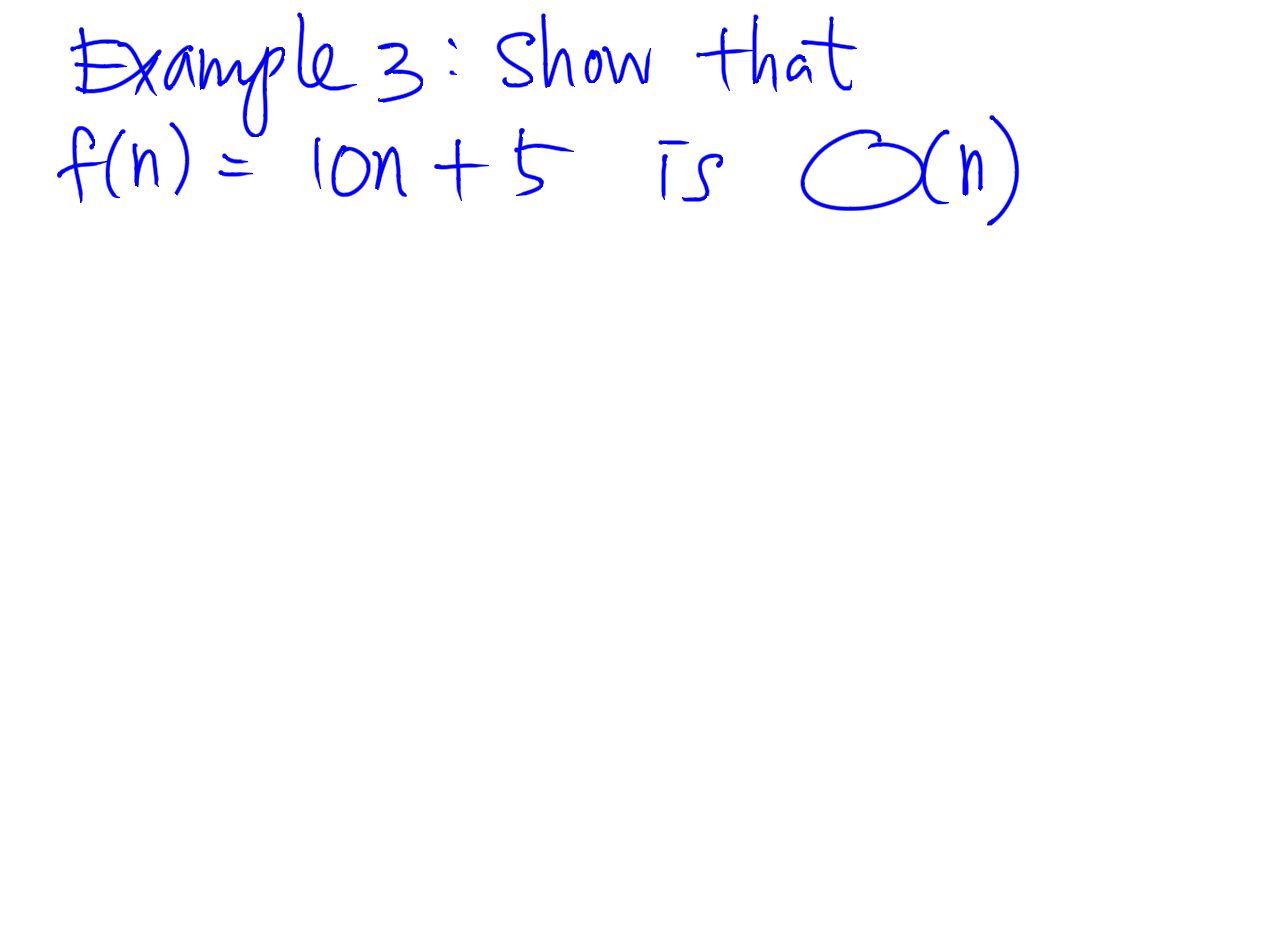 Example 3: Show that
f(n) = 10n + 5 is O(n)